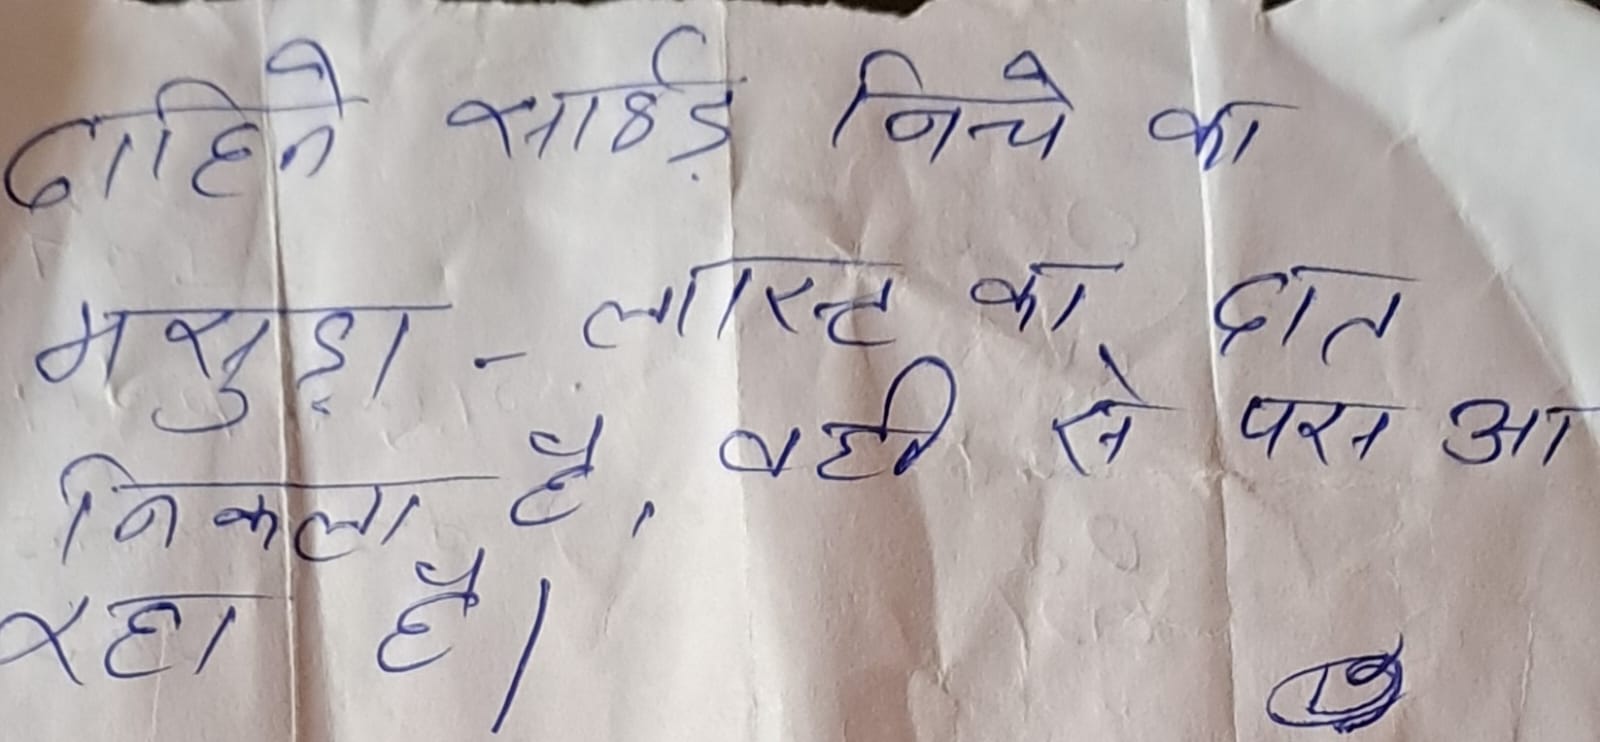 दाहिने साईड़ निचे का
मसुड़ा - लास्ट का दात
निकला है, वही से पस आ
रहा है।